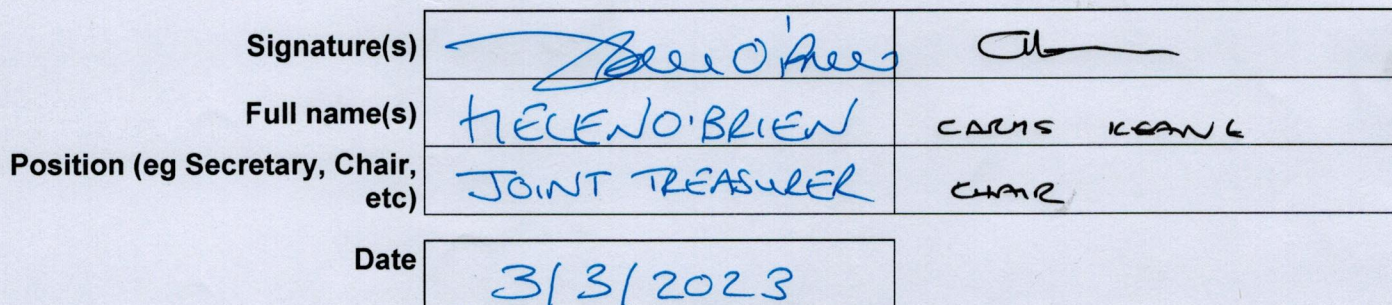 Signature(s)
Full name(s) HELEN O'BRIEN CARYS KEANE
Position (eg Secretary, Chair,
etc) JOINT TREASURER CHAIR
Date 3/3/2023